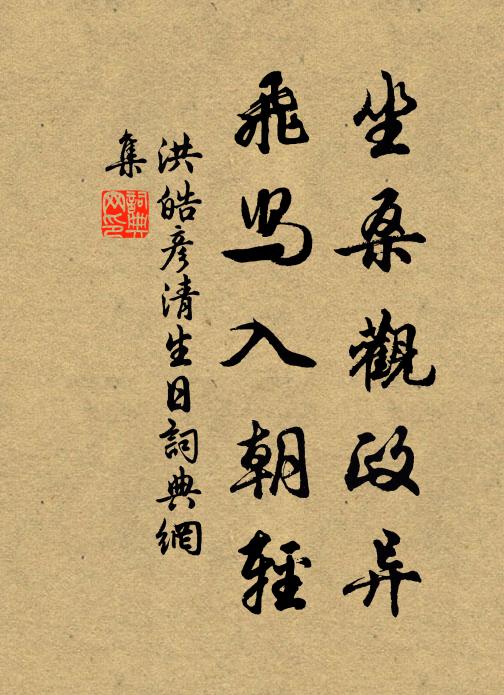 坐桑觀政异
飛舄入朝輕
洪皓彥清生日詞典網
集
詞典
网印